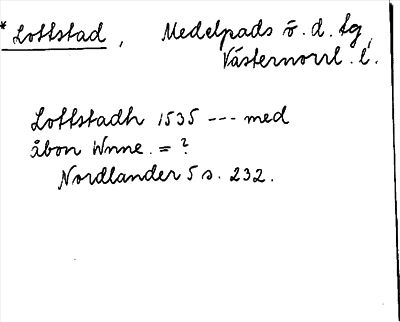 * Lottstad, Medelpads ö. d. tg,
Västernorrl. l.
Lottstadh 1535 --- med
åbon Wnne. = ?
Nordlander 5 s. 232.